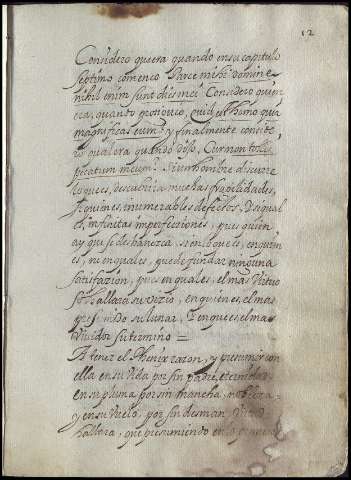 12
Considero quiera quando en su capitulo
septimo comenco Parce mihi Domine
nihil enim sunt dies mei Considero quien
era, quando prosiguio, quid est homo quia
magnificas eum? y finalmente conside,
ro qual era quando dijo, Cur non tollis
peccatum meum? Si un hombre discurre
lo que es, descubrira muchas fragilidades,
si quien es, inumerables defectos, si qual
es, infinitas imperfecciones, pues quien
ay que se desbanezca, si en lo que es, en quien
es, ni en qual es, puede fundar ninguna
satisfazion, que en qual es, el mas Virtuo
so hallara su vizio, en quien es, el mas
su lunar, en que es, el mas
su termino =
A tener el Phenix razon, y presumir con
ella en su vida por sin padre,
en su pluma por sin mancha,
y en su Vuelo, por sin desman,
hallara, que presumiendo en lo